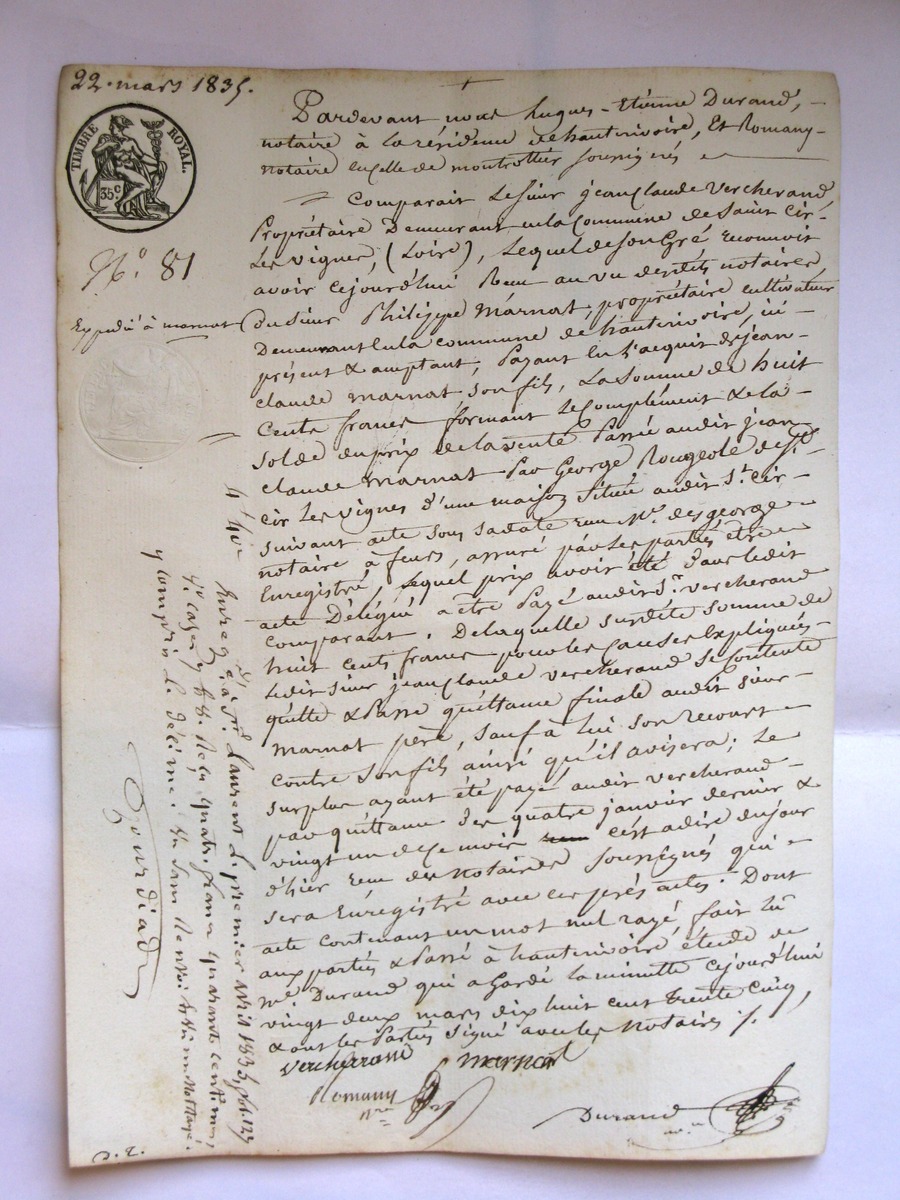 22. mars 1835.
TIMBRE ROYAL.
35 c
No. 81
Expedié à marnat
Pardevant nous hugues-Etienne Durand,
notaire à la résidence de hauterivoire, Et Romany
notaire en celle de montrottier soussignés
Comparait Le Sieur jean Claude Vercherand
Propriétaire Demeurant en la Commune de Saint Cir-
Les vignes, (Loire), Lequel de Son Gré reconnoit
avoir cejourd'hui Recu au vu desdits notaires
du Sieur Philippe Marnat, propriétaire cultivateur
Demeurant en la commune de hauterivoire, ici
présent & acceptant, Payant En L'acquit de jean-
claude Marnat Son fils, La Somme de huit
Cents francs formant Le Complément & la
Solde du prix de la vente Passée audit jean
claude Marnat Par George Rougeole de St
cir Les vignes d'une maison Située audit St Cir-
suivant acte Sous Sa date recu Me. des george
notaire à feurs, assuré par les parties être
Enregistré, Lequel prix avoit été dans ledit
acte Délégué a être Payé audit Sr. vercherand
Comparant. De laquelle Susdite Somme de
huit cents francs pour les Causes Expliquées
Ledit Sieur jean Claude vercherand Se Contente
quitte & Passe quittance finale audit Sieur
Marnat père, Sauf à Lui Son recours
contre Son fils ainsi qu'il avisera; Le
surplus ayant été payé audit vercherand
par quittance des quatre janvier dernier &
vingt un de ce mois c'est adire du jour
d'hier recu des notaires Soussignés qui
sera Enregistré avec ces présentes. Dont
acte contenant un mot nul rayé fait Lu
aux parties & Passé à hauterivoire étude de
Me. Durand qui a Gardé La minutte cejourd'hui
vingt deux mars dix huit cent trente Cinq,
& ont les Parties Signé avec les Notaires ./.
vercherand marnat
Romany
nre
Durand
4 f 40 c
Enreg.é à St. Laurent Le premier avril 1835, fo. 129
Ro. cases 7 & 8. Reçu quatre francs quarante centimes
y compris le décime. Sans Renvoi
Gourdiad
D. L.